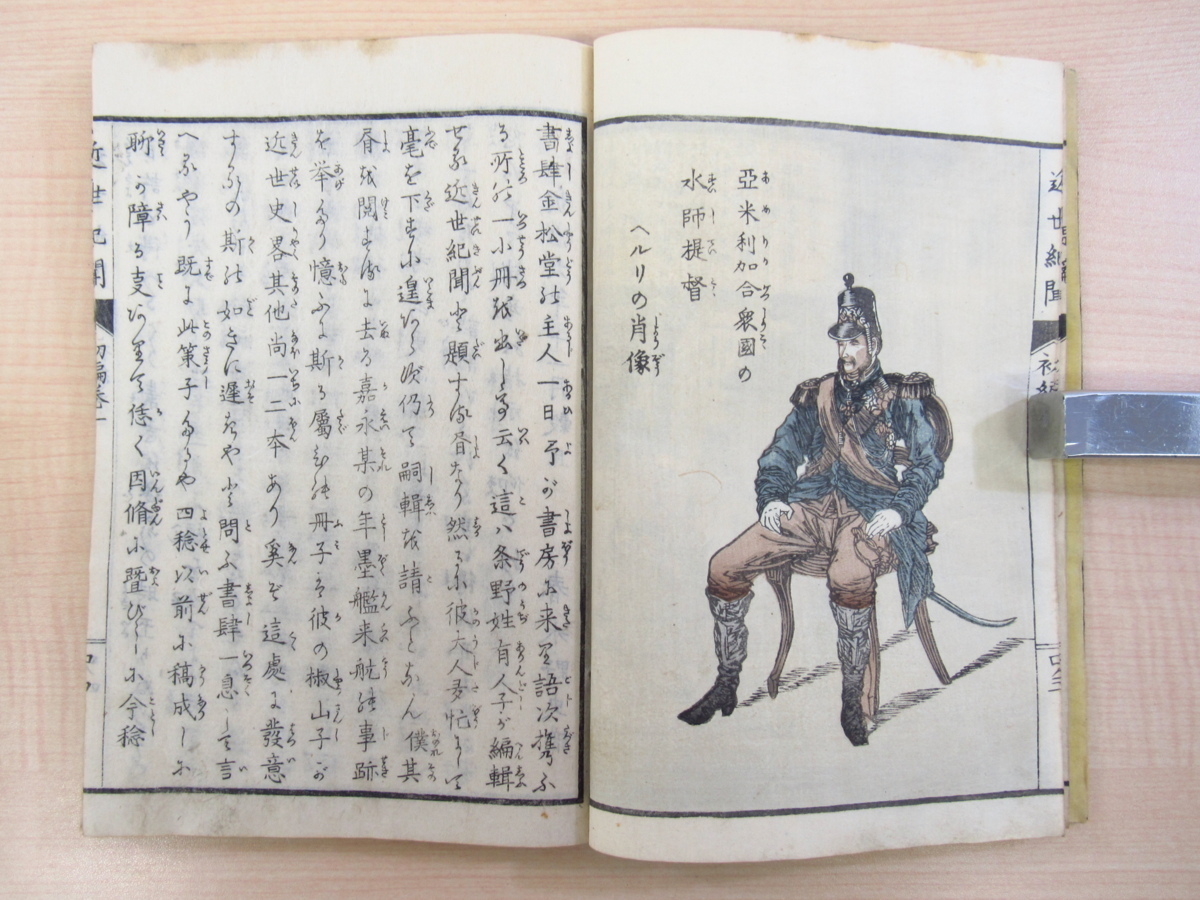 亞米利加合衆國の
水師提督
ヘルリの肖像
近世紀聞
初編
書肆金松堂の主人一日予が書房に来り語次携ふ
る所の一小冊を出して云く這ハ条野姓有人子が編輯
せる近世紀聞と題する書なり然るに彼大人多忙にして
毫を下すに遑あらず仍て嗣輯を請ふとなん僕其
書を閲するに去る嘉永某の年墨艦来航の事跡
を挙たり憶ふに斯る屬ひの冊子は彼の椒山子が
近世史畧其他尚一二本あり奚ぞ這處に發意
するの斯の如きに遲きやと問ふ書肆一息して言
へるやう既に此策子たるや四稔以前に稿成しに
聊か障る支ありて恁く因脩に曁びしに今稔
近世紀聞
初編巻一